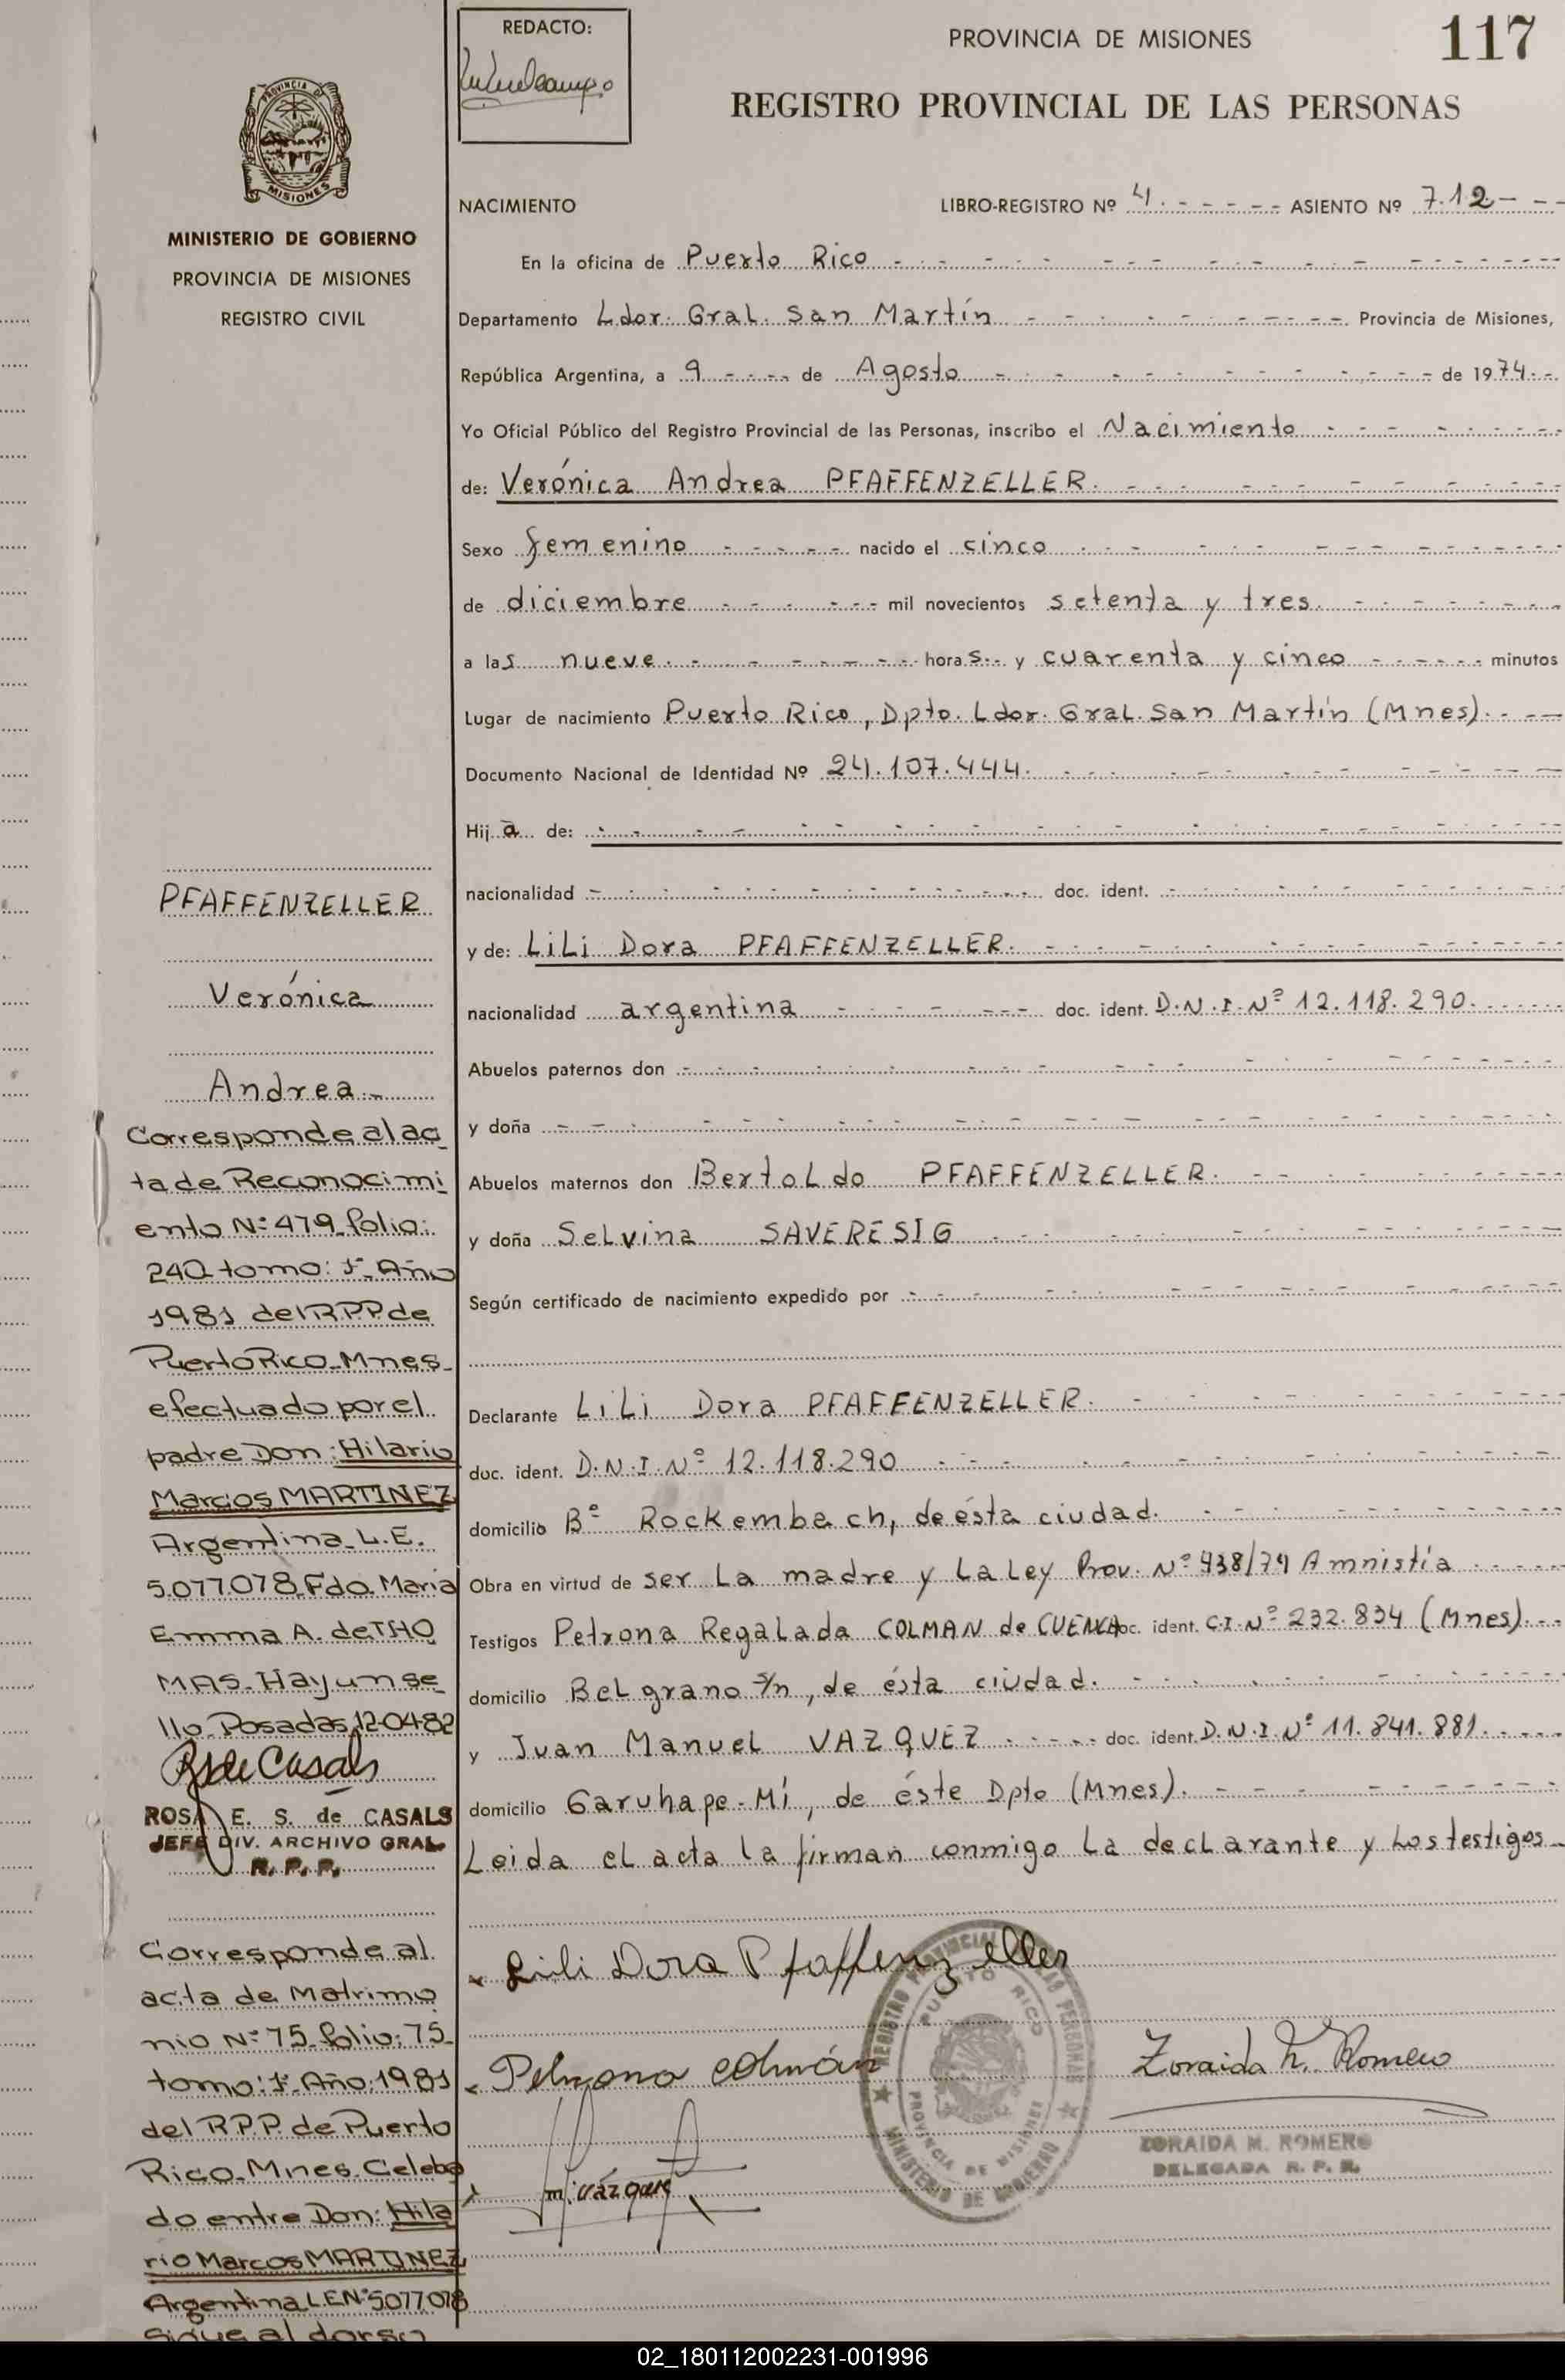 REDACTO:
PROVINCIA DE MISIONES
117
REGISTRO PROVINCIAL DE LAS PERSONAS
PROVINCIA D
MISIONES
MINISTERIO DE GOBIERNO
PROVINCIA DE MISIONES
REGISTRO CIVIL
NACIMIENTO LIBRO-REGISTRO Nº 4. ASIENTO Nº 712
En la oficina de Puerto Rico
Departamento Ldor. Gral. San Martín Provincia de Misiones,
República Argentina, a 9 de Agosto de 1974.
Yo Oficial Público del Registro Provincial de las Personas, inscribo el Nacimiento
de: Verónica Andrea PFAFFENZELLER.
Sexo femenino nacido el cinco
de diciembre mil novecientos setenta y tres.
a las nueve. horas. y cuarenta y cinco minutos
Lugar de nacimiento Puerto Rico, Dpto. Ldor. Gral. San Martín (Mnes).
Documento Nacional de Identidad Nº 24.107.444.
Hija de:
nacionalidad doc. ident.
y de: LiLi Dora PFAFFENZELLER.
nacionalidad argentina doc. ident. D.N.I.Nº 12.118.290.
Abuelos paternos don
y doña
Abuelos maternos don BertoLdo PFAFFENZELLER.
y doña SeLvina SAVERESIG
Según certificado de nacimiento expedido por
Declarante LiLi Dora PFAFFENZELLER.
doc. ident. D.N.I.Nº 12.118.290
domicilio Bº Rockembach, de ésta ciudad.
Obra en virtud de ser La madre y La Ley Prov. Nº 438/74 Amnistía
Testigos Petrona RegaLada COLMAN de CUENCA doc. ident. C.I.Nº 232.834 (Mnes).
domicilio BeLgrano s/n, de ésta ciudad.
y Juan ManueL VAZQUEZ doc. ident. D.N.I.Nº 11.841.881.
domicilio Garuhape-Mí, de éste Dpto (Mnes).
Leida eL acta la firman conmigo La decLarante y Los testigos
Lili Dora Pfaffenzeller
Petrona Colmán
m. vázquez
REGISTRO PROVINCIAL DE LAS PERSONAS
PUERTO RICO
PROVINCIA DE MISIONES
MINISTERIO DE GOBIERNO
Zoraida M. Romero
ZORAIDA M. ROMERO
DELEGADA R. P. P.
PFAFFENZELLER
Verónica
Andrea
Corresponde al ac
ta de Reconocimi
ento Nº 479 folio:
240 tomo: 1º Año
1981 del R.P.P. de
Puerto Rico-Mnes-
efectuado por el
padre Don: Hilario
Marcos MARTINEZ
Argentina L.E.
5.077.078 Fdo. Maria
Emma A. de THO
MAS. Hay un se
llo. Posadas 12-04-82
RSde Casals
ROSA E. S. de CASALS
JEFE DIV. ARCHIVO GRAL
R. P. P.
Corresponde al
acta de Matrimo
nio Nº 75 folio: 75
tomo: 1º Año 1981
del R.P.P. de Puerto
Rico-Mnes. Celebra
do entre Don: Hila
rio Marcos MARTINEZ
Argentina L.E.Nº 5.077.078
sigue al dorso
02_180112002231-001996